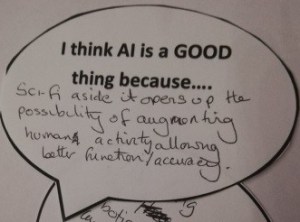 I think AI is a GOOD
thing because....
Sci-fi aside it opens up the
possibility of augmenting
human activity allowing
better function/accuracy.